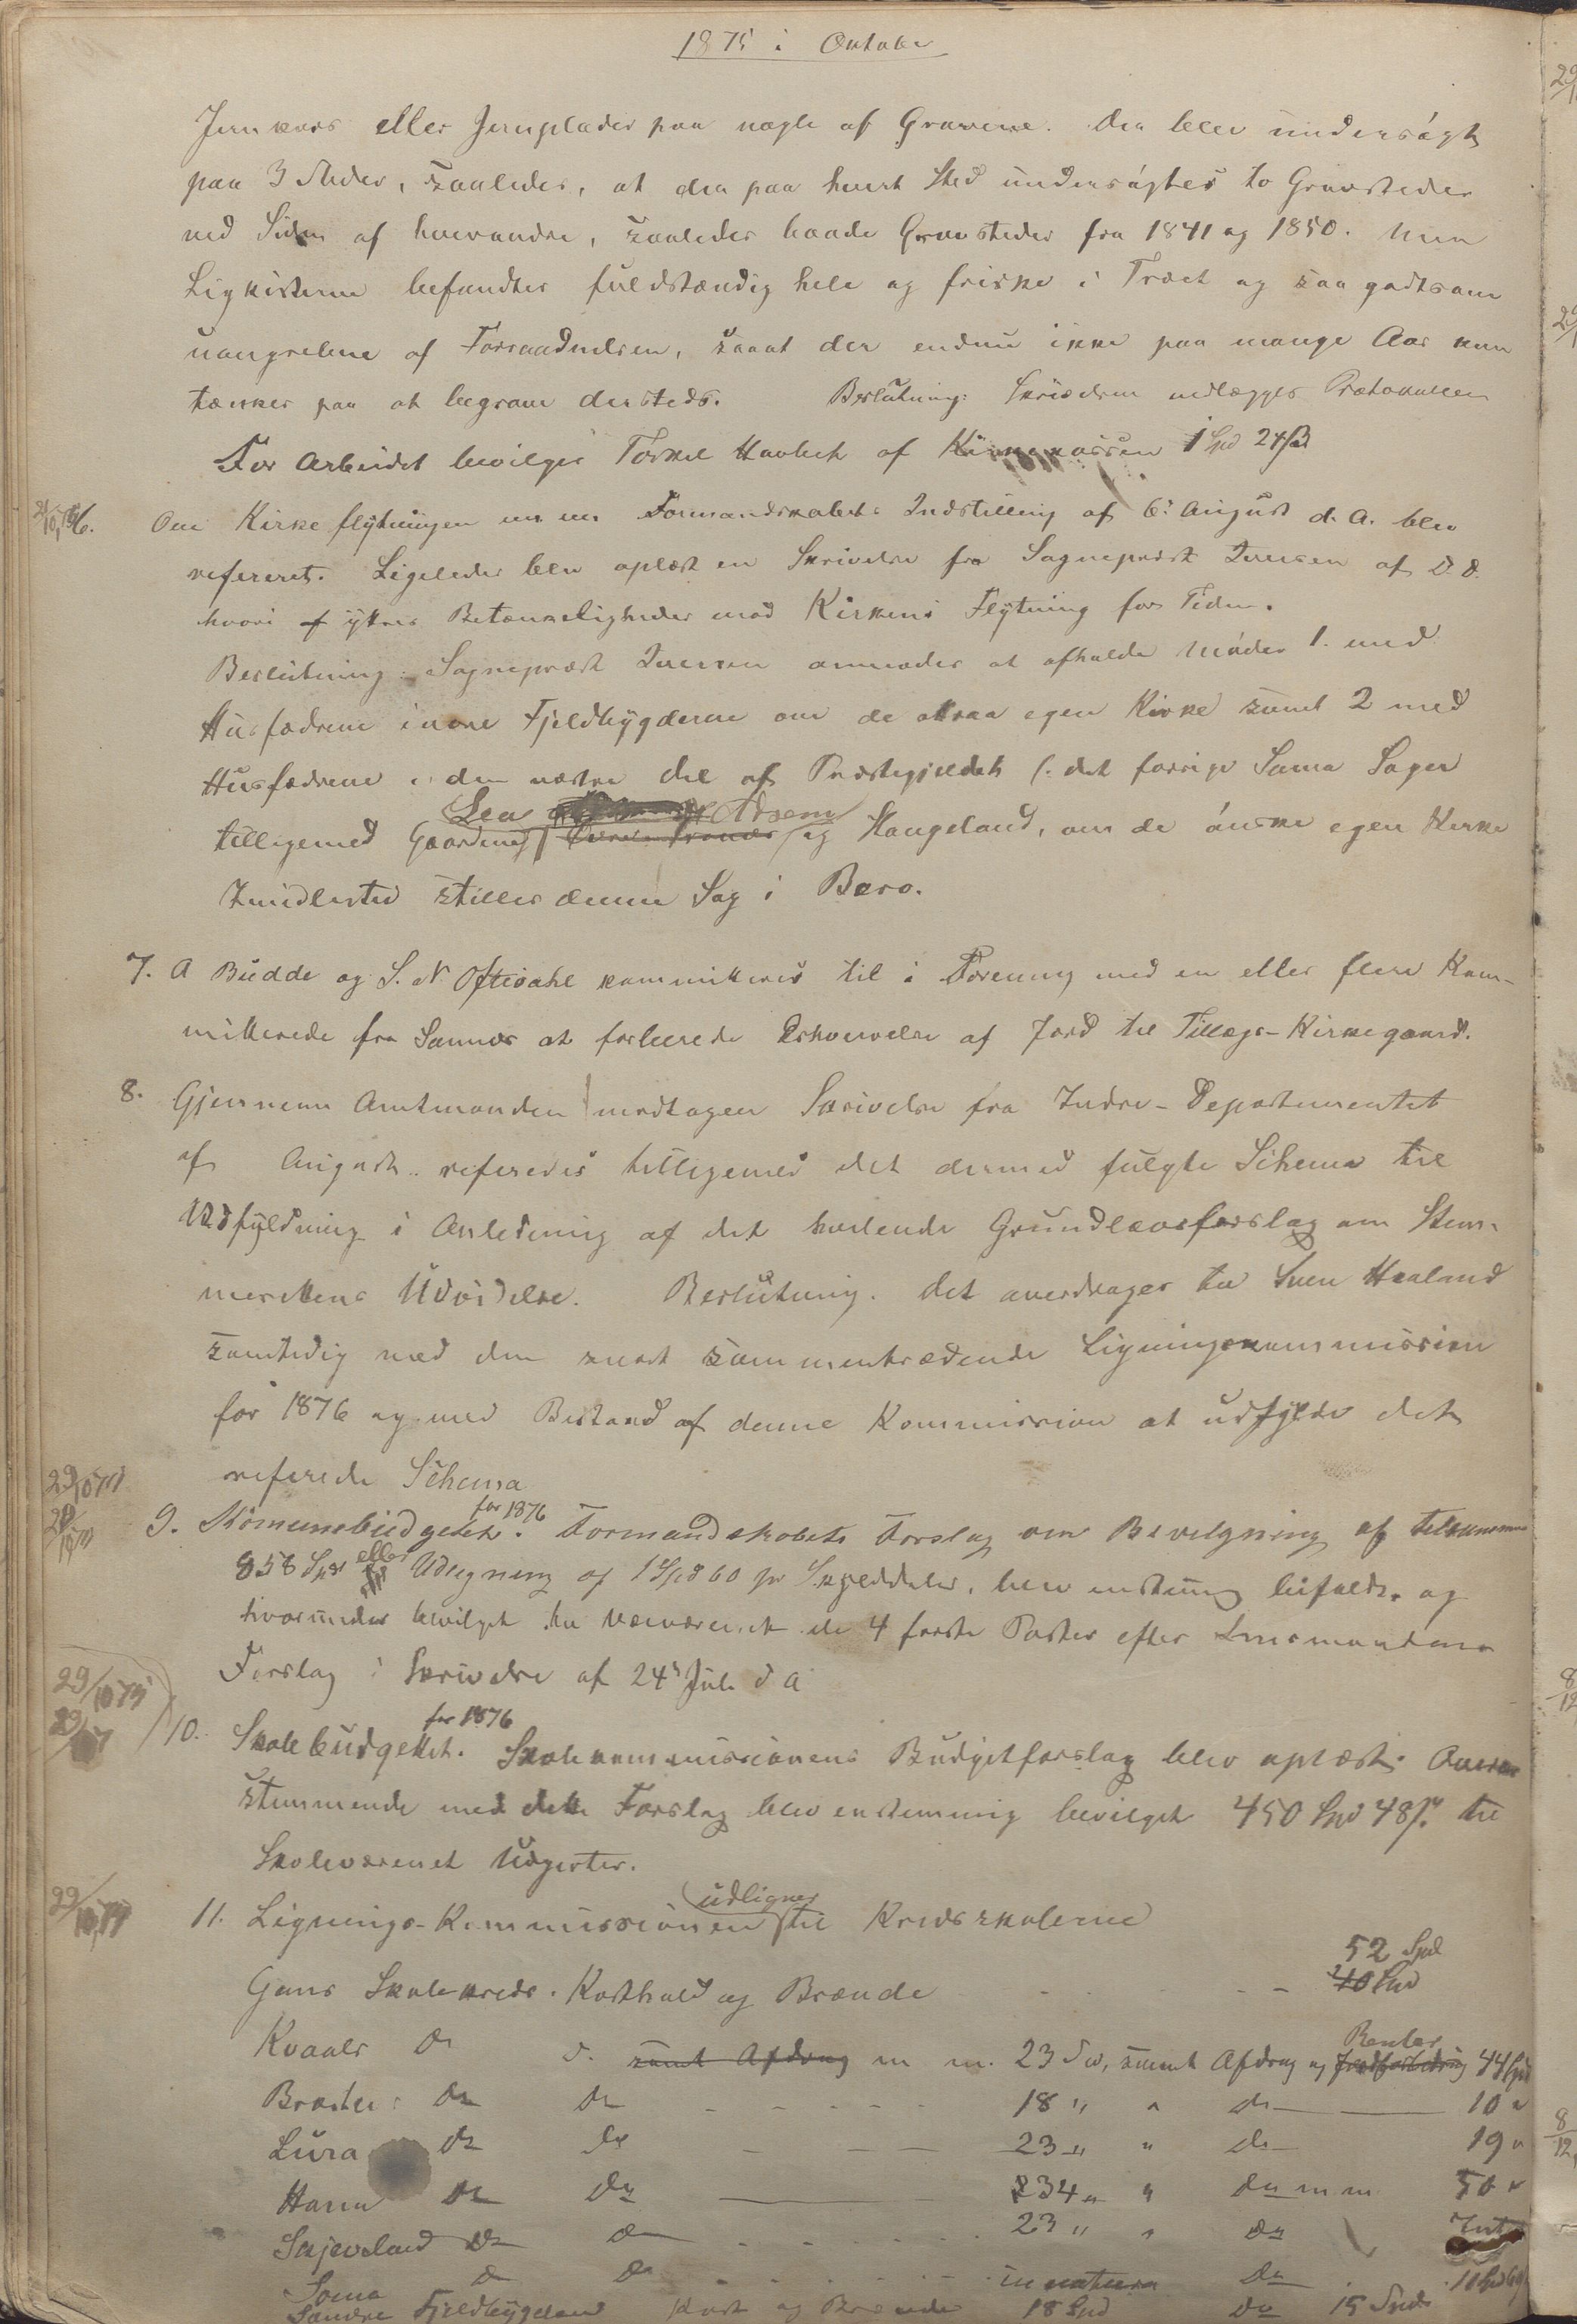 1875 i Oktober
Jernkors eller Jernplader paa nogle af Gravene. Der blev undersøgt
paa 3 Steder, saaledes, at der paa hvert Sted undersøgtes to Gravsteder
ved Siden af hverandre, saaledes baade Gravsteder fra 1841 og 1850. Men
Ligkisterne befandtes fuldstændig hele og friske i Træet og saa godtsom
uangrebne af Forraadnelsen, saaat der endnu ikke paa mange Aar kan
tænkes paa at begrave dersteds. Beslutning: Skrivelsen vedlægges Protokollen
For Arbeidet bevilges Torkel Havbek af Kirkekassen 1 Spd 24 ß
6. Om Kirkeflytningen m m Formandskabets Indstilling af 6. August d. A. blev
refereret. Ligeledes blev oplæst en Skrivelse fra Sogneprest Iversen af D. D.
hvori yttres Betænkeligheder mod Kirkens Flytning for Tiden.
Beslutning. Sogneprest Iversen anmodes at afholde Møder 1. med
Husfædrene i Fjeldbygderne om de attraa egen Kirke samt 2 med
Husfædrene i den vestre Del af Præstegjeldet (: det forrige Soma Sogn
Lea Adsem
tilligemed Gaardene og Haugeland, om de ønske egen Kirke
Imidlertid stilles denne Sag i Bero.
7. A Budde og S. N Oftedahl kommitteres til i Forening med en eller flere Kom-
mitterede fra Sannes at forberede Erhvervelse af Jord til Tillægs-Kirkegaard.
8. Gjennem Amtmanden modtagen Skrivelse fra Indre-Departementet
af August refereredes tilligemed det dermed fulgte Schema til
Udfyldning i Anledning af det hvilende Grundlovsforslag om Stem-
merettens Udvidelse. Beslutning. Det overdrages til Sven Haaland
samtidig med den snart sammentrædende Ligningskommission
for 1876 og med Bistand af denne Kommission at udfylde det
referede Schema
for 1876
9. Komunebudgettet. Formandskabets Forslag om Bevilgning af tilsammen
858 Spd eller Udligning af 1 Spd 60 pr Skylddaler, blev enstemig bifaldt og
hvorunder bevilget til Veivæsenet de 4 første Poster efter Lensmandens
Forslag i Skrivelse af 24de Juli d A
for 1876
10. Skolebudgettet. Skolekommissionens Budgetforslag blev oplæst. Overens-
stemmende med dette Forslag blev enstemmig bevilget 450 Spd 48 ß til
Skolevæsenet Udgifter.
udligner
11. Lignings-Kommissionen til Kredsskolerne
52 Spd
Gans Skolekreds. Kosthold og Brænde - - - 40 Spd
Renter
Kvaals Do Do samt Afdrag m m. 23 Spd, samt Afdrag og 44 Spd
Bræsteins Do Do - - - - 18 " " Do 10 "
Lura Do Do - - 23 " " Do 19 "
Hana Do Do 234 " " Do m m 50 "
Skjeveland Do Do - - - 23 " " Do Intet
Soma Do Do - - - in natura Do
Søndre Fjeldbygeland Kost og Brænde 18 Spd Do 15 Spd